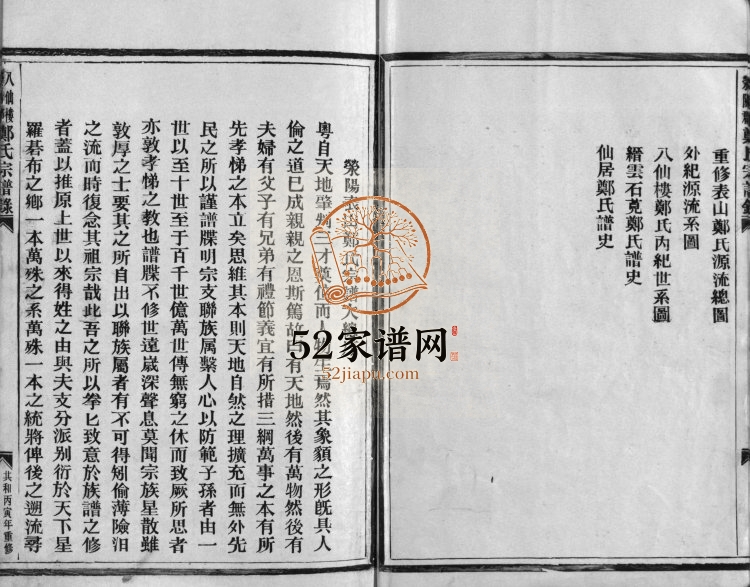 鄭氏宗譜
重修表山鄭氏源流總圖
外紀源流系圖
八仙樓鄭氏內紀世系圖
縉雲石莧鄭氏譜史
仙居鄭氏譜史
滎陽表山鄭氏宗譜
粵自天地肇判三才奠位而人物生焉然其象額之形旣具人
倫之道巳成親親之恩斯篤故曰有天地然後有萬物然後有
夫婦有父子有兄弟有禮節義宜有所措三綱萬事之本有所
先孝悌之本立矣思維其本則天地自然之理擴充而無外先
民之所以謹譜牒明宗支聯族属繫人心以防範子孫者由一
世以至十世至于百千世億萬世傳無窮之休而致厥所思者
亦敦孝悌之教也譜牒不修世遠歲深聲息莫聞宗族星散雖
敦厚之士要其之所自出以聯族屬者有不可得矧偷薄險汨
之流而時復念其祖宗哉此吾之所以拳匕致意於族譜之修
者蓋以推原上世以來得姓之由與夫支分派别衍於天下星
羅碁布之鄉一本萬殊之系萬殊一本之統將俾後之遡流尋
八仙樓鄭氏宗譜錄
共和丙寅年重修
52家谱网
52jiapu.com